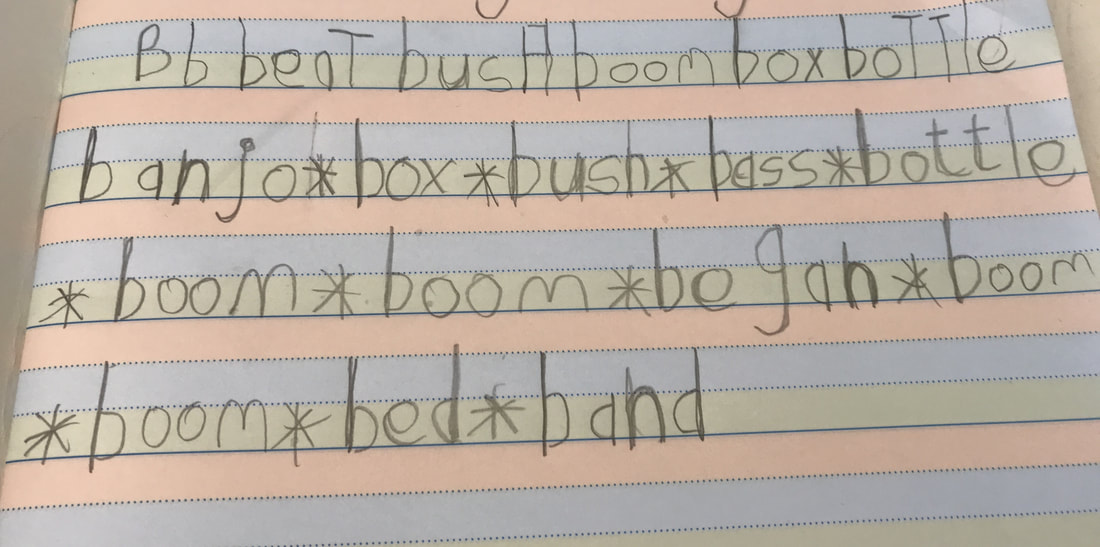 Bb beaT busH boom box boTTle
banjo*box*bush*bass*bottle
*boom*boom*began*boom
*boom*bed*band